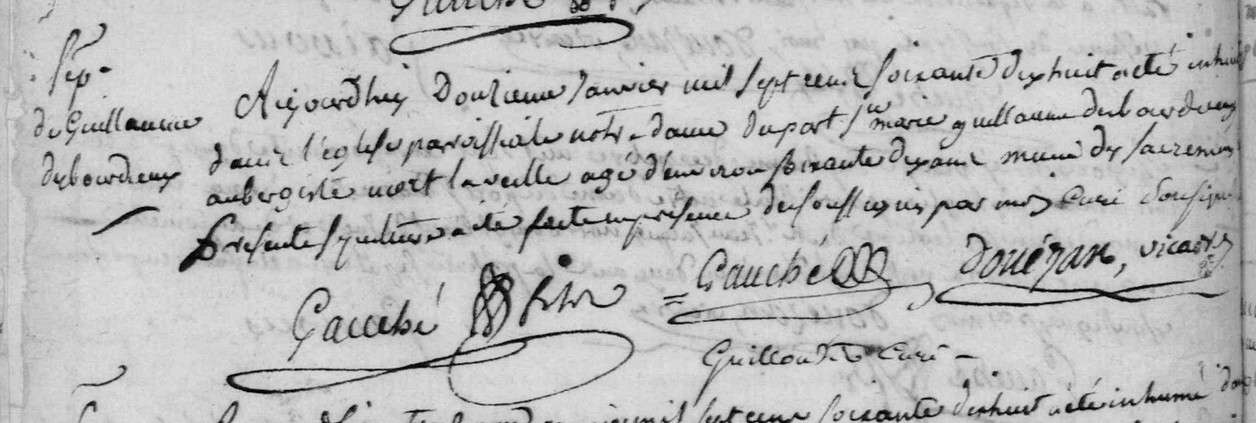 Gauché
Sép.
de Guillaume
desbourdieux
Aujourdhuy Douzieme Janvier mil sept cens soixante dixhuit a eté inhumé
dans l'eglise parroissiale notre dame du port Sr marie guillaume desbourdieux
aubergiste mort la veille agé d'environ soixante dix ans muni des sacremens
presente sepulture a eté faite en presence des soussignés par moy Curé soussigné
Gauché
Gauché Douézan, vicaire
Guilloutet Curé
mil sept cens soixante dixhuit a eté inhumé dans